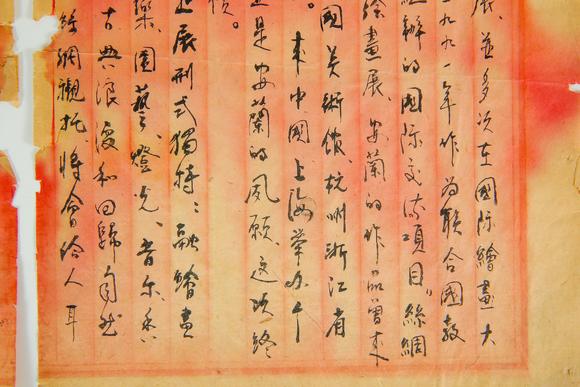 展、並多次在國际繪畫大
一九九一年作为联合國教
辦的國际交流項目。絲綢
繪畫展、安蘭的作品曾来
國美術馆、杭州浙江省
。来中國上海舉办个
是安蘭的夙願、这次终
。
展刑式獨特；融繪畫
樂、園藝、燈光、音乐、香
古典浪漫和回歸自然
絲綢襯托將會给人耳